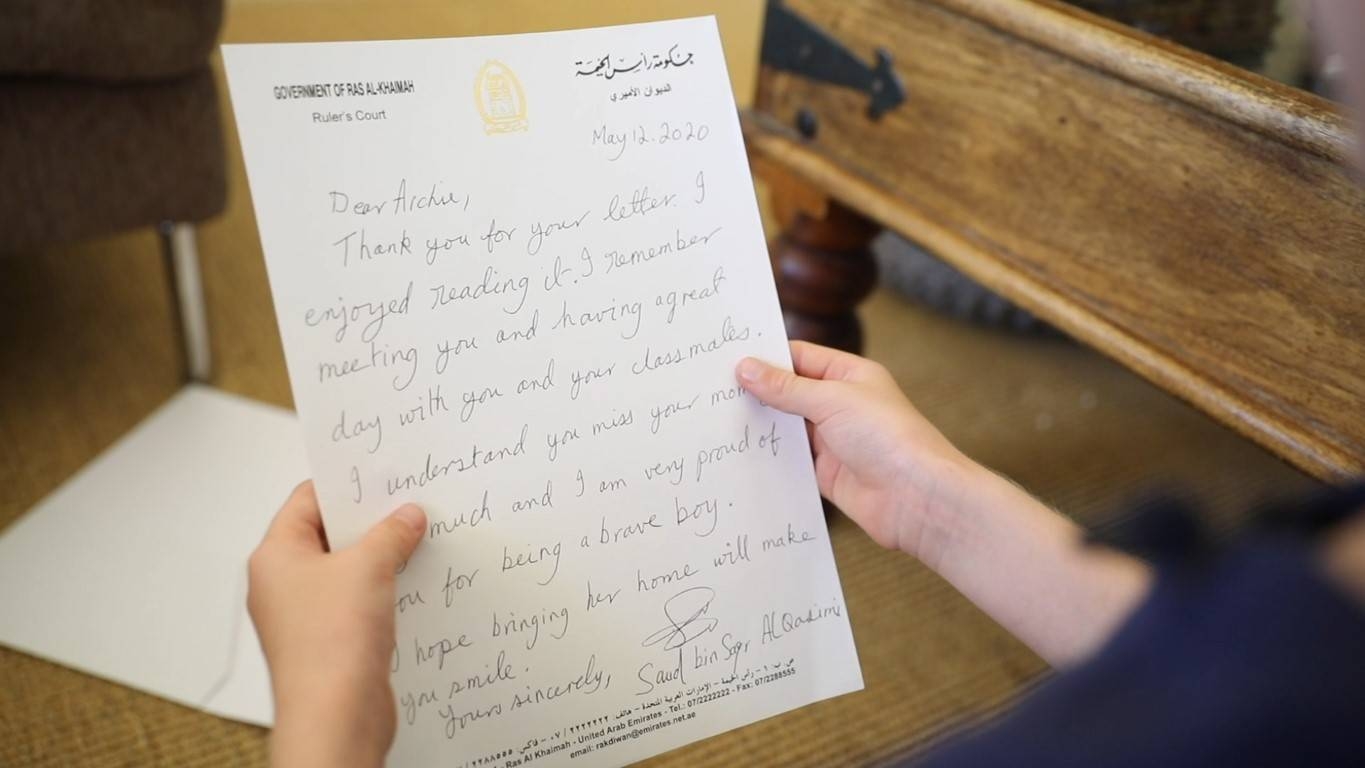 GOVERNMENT OF RAS AL-KHAIMAH
Ruler's Court
حكومة رأس الخيمة
الديوان الأميري
May 12. 2020
Dear Archie,
Thank you for your letter. I
enjoyed reading it. I remember
meeting you and having a great
day with you and your classmates.
I understand you miss your
much and I am very proud of
for being a brave boy.
hope bringing her home will make
you smile.
Yours sincerely,
Saud bin Saqr Al Qasimi
ص.ب: ١ – رأس الخيمة – الإمارات العربية المتحدة – هاتف: ٢٢٢٢٢٢٢ / ٠٧ – فاكس:
Ras Al Khaimah - United Arab Emirates - Tel.: 07/2222222 - Fax: 07/2288555
email: rakdiwan@emirates.net.ae